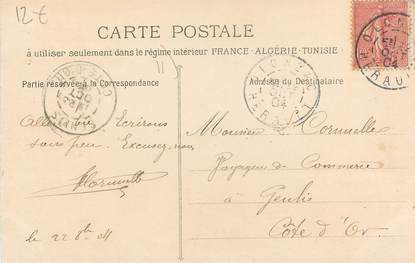 12 €
CARTE POSTALE
à utiliser seulement dans le régime intérieur FRANCE - ALGÉRIE - TUNISIE
Partie réservée à la Correspondance
Adresse du Destinataire
Allons bien. Ecrirons
sous peu. Excusez-nous
le 22 8bre 04
Monsieur Cornuelle
Voyageur de Commerce
à Genlis
Côte d'Or
HERAULT